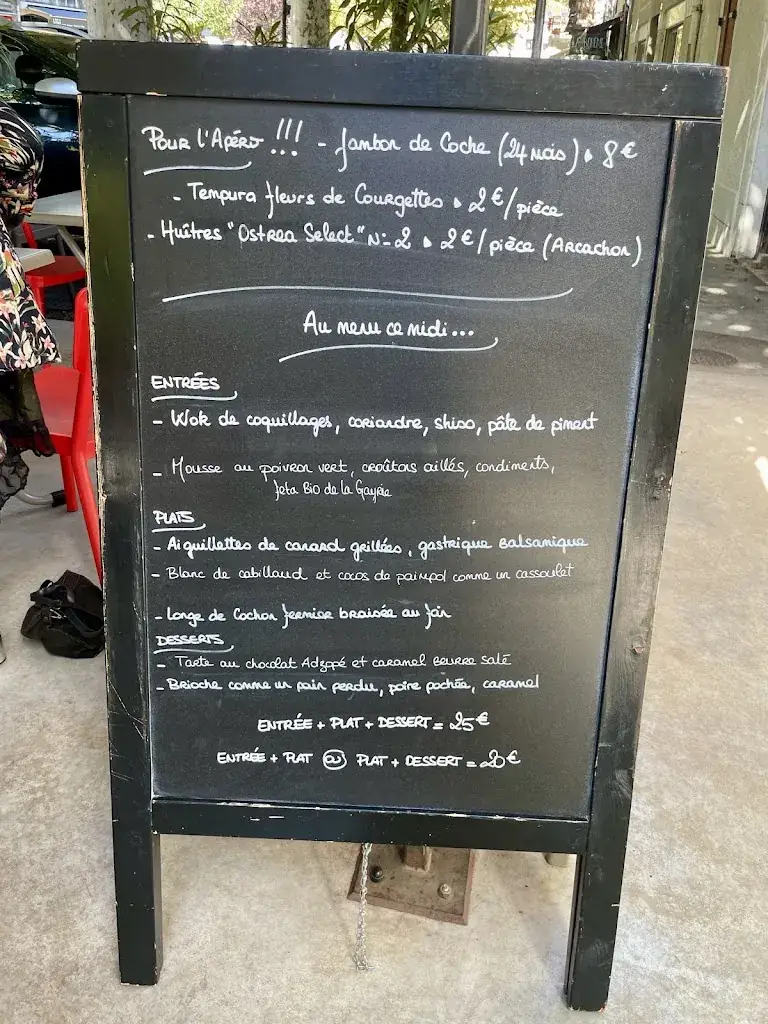 Pour l'Apéro !!! - Jambon de Coche (24 mois) • 8€
- Tempura fleurs de Courgettes • 2€/pièce
- Huîtres "Ostrea Select" N=2 • 2€/pièce (Arcachon)
Au menu ce midi...
ENTRÉES
- Wok de coquillages, coriandre, shiso, pâte de piment
- Mousse au poivron vert, croûtons aillés, condiments,
feta Bio de la Gayrie
PLATS
- Aiguillettes de canard grillées, gastrique Balsamique
- Blanc de cabillaud et cocos de paimpol comme un cassoulet
- Longe de Cochon fermier braisée au foin
DESSERTS
- Tarte au chocolat Adzopé et caramel Beurre salé
- Brioche comme un pain perdu, poire pochée, caramel
ENTRÉE + PLAT + DESSERT = 25€
ENTRÉE + PLAT ou PLAT + DESSERT = 20€